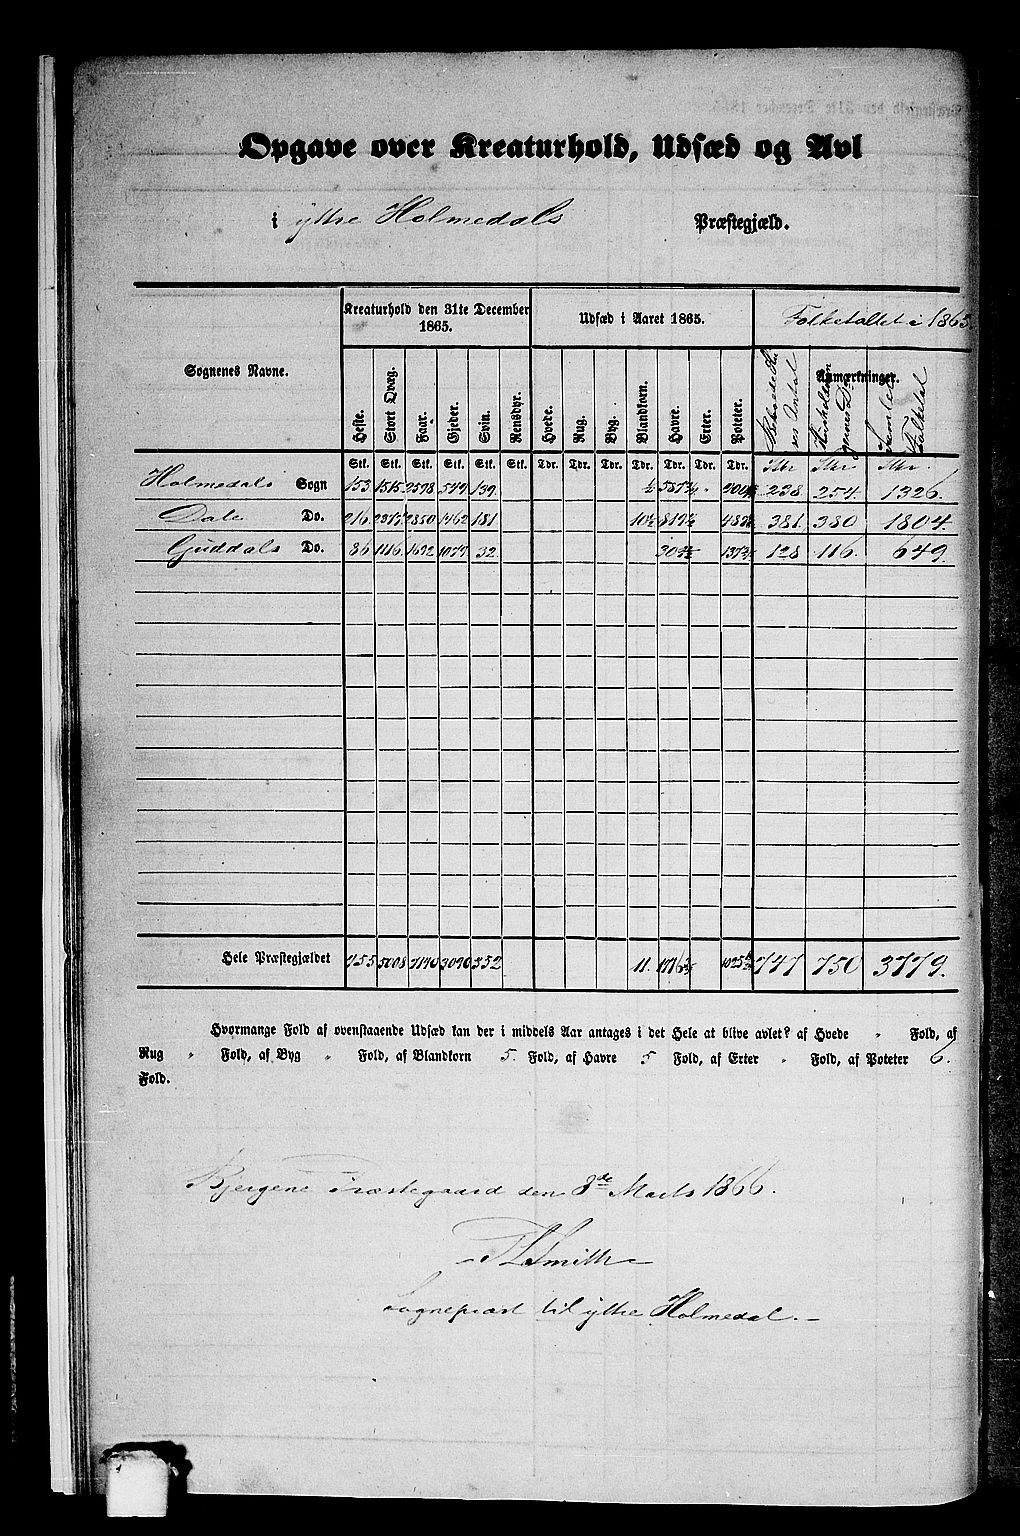 Opgave over Kreaturhold, Udsæd og Avl
i yttre Holmedals Præstegjæld.
Sognenes Navne.
Kreaturhold den 31te December 1865.
Udsæd i Aaret 1865.
Folketallet i 1865.
Anmærkninger.
Heste. Stort Qvæg. Faar. Gjeder. Svin. Rensdyr. Hvede. Rug. Byg. Blandkorn. Havre. Erter. Poteter. Beboede Huses Antal Husholdningernes Do Samlet Folketal
Stk. Stk. Stk. Stk. Stk. Stk. Tdr. Tdr. Tdr. Tdr. Tdr. Tdr. Tdr. Stk. Stk. Stk.
Holmedals Sogn 153 1515 2598 549 139 ½ 238 254 1326.
Dale Do. 216 2850 1462 181 10½ 381. 380 1804.
Guddals Do. 86 1116 1692 1079 32 128 116 649.
Hele Præstegjældet 455 5008 7140 3090 352 11. 747 750 3779.
Hvormange Fold af ovenstaaende Udsæd kan der i middels Aar antages i det Hele at blive avlet? af Hvede " Fold, af
Rug " Fold, af Byg " Fold, af Blandkorn 5. Fold, af Havre 5 Fold, af Erter " Fold, af Poteter 6.
Fold.
Præstegaard den 3de Marts 1866.
Smith
Sognepræst til yttre Holmedal.